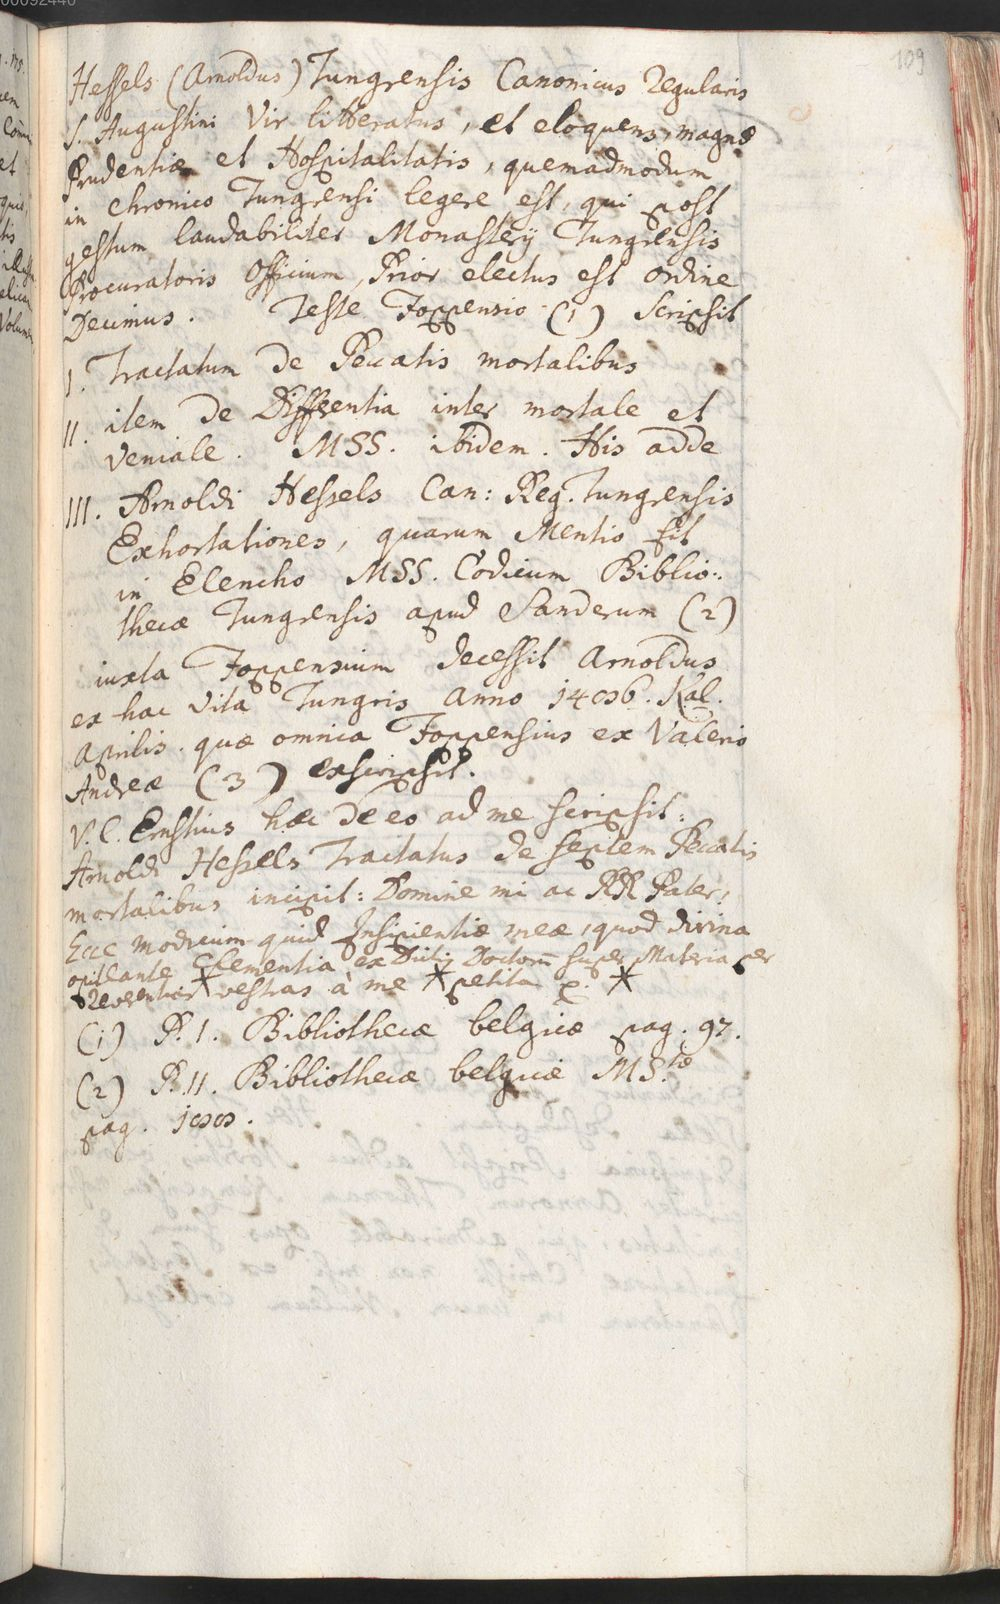 109
Hessels (Arnoldus) Tungrensis Canonicus Regularis
S. Augustini Vir litteratus, et eloquens, magnæ
Prudentiæ et Hospitalitatis, quemadmodum
in chronico Tungrensi legere est, qui post
gestum laudabiliter Monasterÿ Tungrensis
Procuratoris Officium, Prior electus est ordine
Decimus. Teste Foppensio (1) Scripsit
I. Tractatum de Peccatis mortalibus
II. item de Differentia inter mortale et
veniale. MSS. ibidem. His adde
III. Arnoldi Hessels Can: Reg. Tungrensis
Exhortationes, quarum Mentio fit
in Elencho MSS. Codicum Biblio:
thecæ Tungrensis apud Sanderum (2)
iuxta Foppensium decessit Arnoldus
ex hac vita Tungris anno Kal.
Aprilis. quæ omnia Foppensius ex Valerio
Andreæ (3) exscripsit.
V. C. Ernstius hæc de eo ad me scripsit:
Arnoldi Hessels Tractatus de septem Peccatis
mortalibus incipit: Domine mi ac RR Pater,
Ecce modicum quid Insipientiæ meæ, quod divina
opitulante Clementia ex Dictis Doctorū super Materia per
Reverentias vestras à me * petita *
(1) P. I. Bibliothecæ belgicæ pag. 97.
(2) P. II. Bibliothecæ belgicæ MS.tæ
pag.